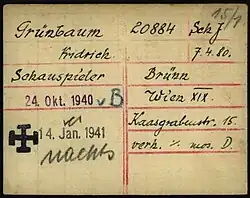 15/1
Grünbaum 20884 Sch J
Fridrich 7.4.80.
Schauspieler Brünn
24. Okt. 1940 v B Wien XIX.
14. Jan. 1941 Kaasgrabenstr. 15.
nachts verh. % mos. D.